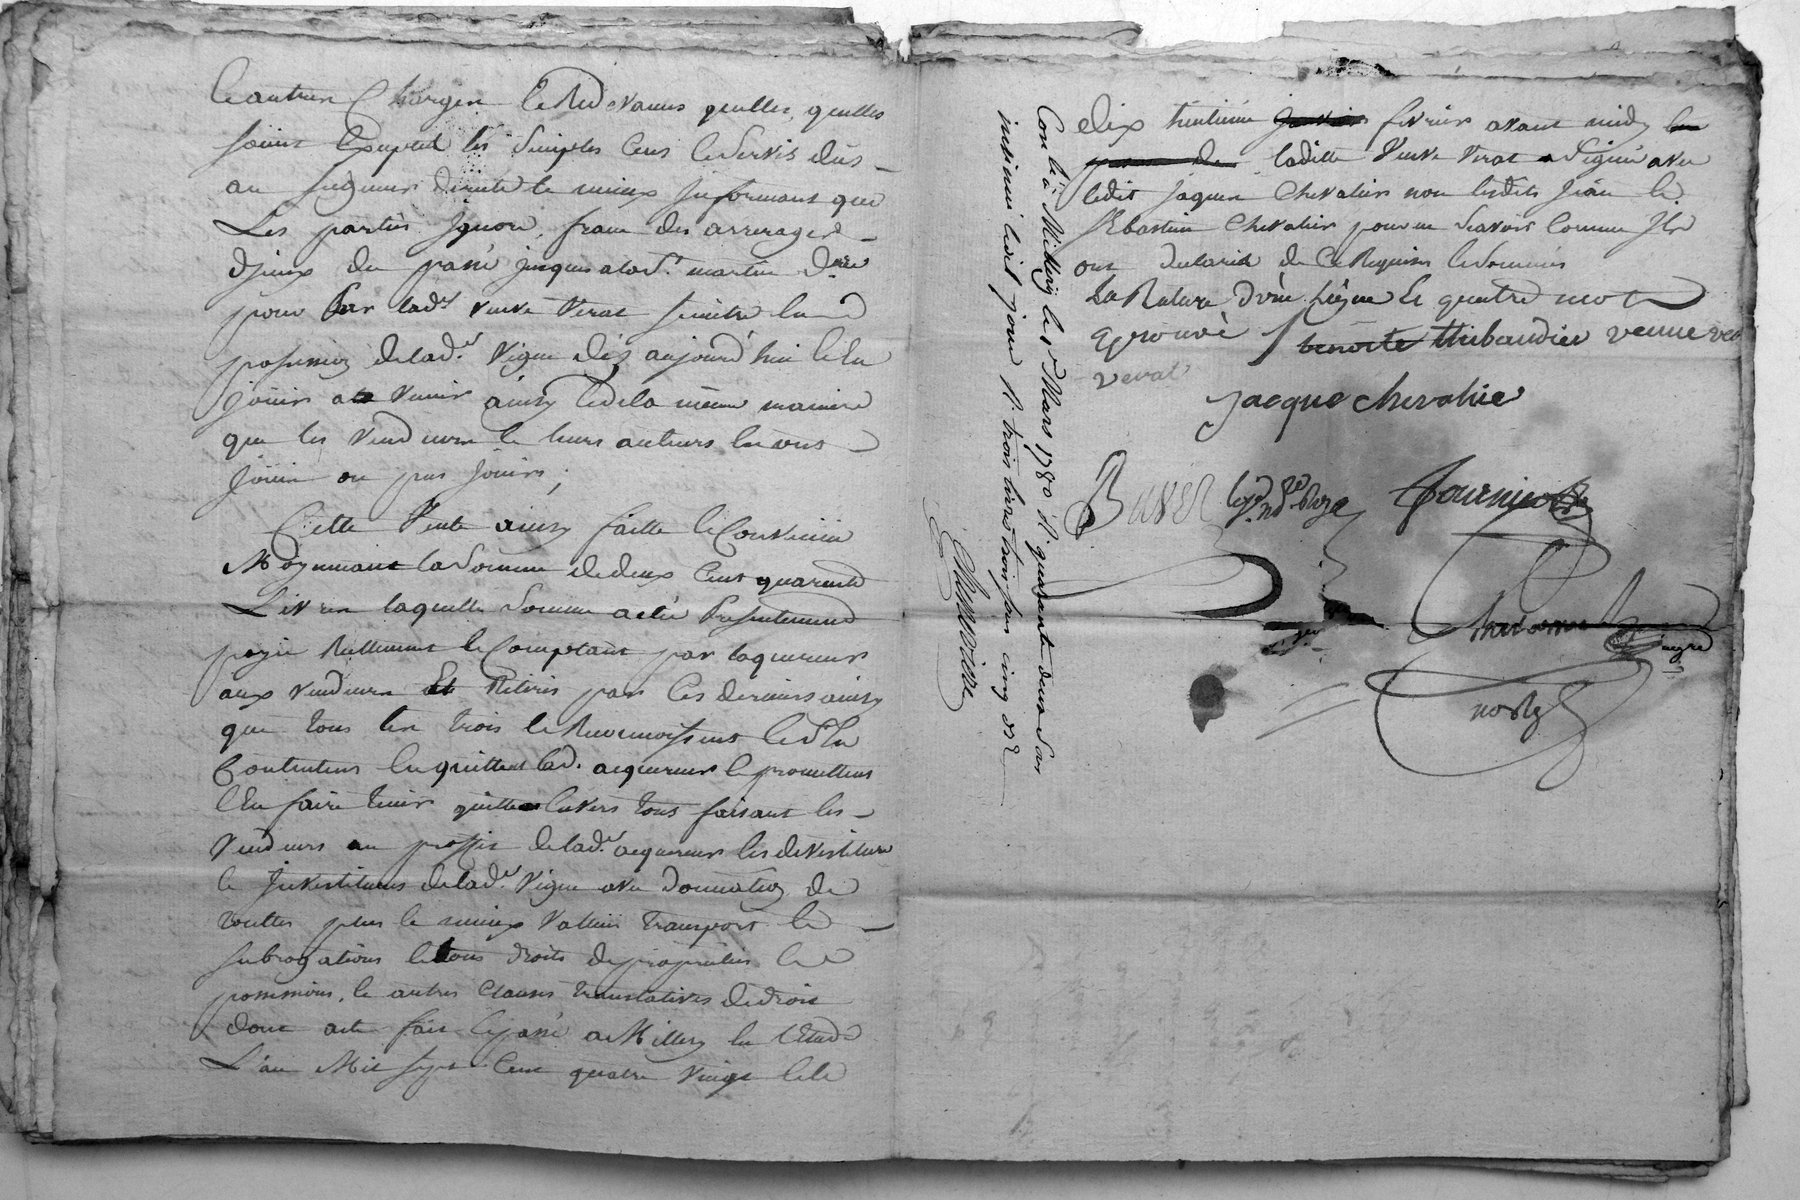 et autres Charges et Redevances quelles, quelles
soient Excepté les simples Cens et Servis dûs
au seigneur direct le mieux Informant que
Les parties Ignore, franc des arrerages
d'iceux du passé jusques a la St. martin Dre
pour Par lad. veuve Verat Se mettre en
possession de lad.e Vigne dés aujourd'hui et En
joüir a Venir ainsy et de la même maniere
que les Vendeurs et leurs autheurs En ont
joüir ou pus joüirs;
Cette Vente ainsy faitte et Convenüe
Moyennant la Somme de deux Cent quarente
Livres laquelle Somme a eté Presentement
payée Reellement et Comptant par laquereur
aux vendeurs Et Retirés par Ces derniers ainsy
que tous les trois le Reconnoissent et d'En
Contentens En quittent lad. acquereur et promettens
l'En faire tenir quitte Envers tous faisant les
Vendeurs au proffit de lad.e acquereur les devestiture
et Investitures de lad.e Vigne avec Donnation de
touttes plus et mieux Vallüe transport et
subrogations et tous droits de proprietés et
possessions, et autres Clauses translatives de droit
dont acte fait et passé a Millery En l'Etude
L'an Mil sept Cent quatre Vingt et le
dix huitieme janvier fevrier avant midy
laditte Veuve Verat a Signé avec
ledit jaques Chevalier non lesdits jean et
sEbastien Chevalier pour ne Scavoir Comme Ils
ont declaré de Ce Requis et Sommés
La Rature d'une Ligne et quatre mots
aprouvé benoite thibaudier veuve ver
verat
jacque chevalie
Buver
fournier
nore
Con.lé à Millery le 1er Mars 1780 R. quarante deux sols
insinué ledit jour R. trois livres trois sols cinq d.rs